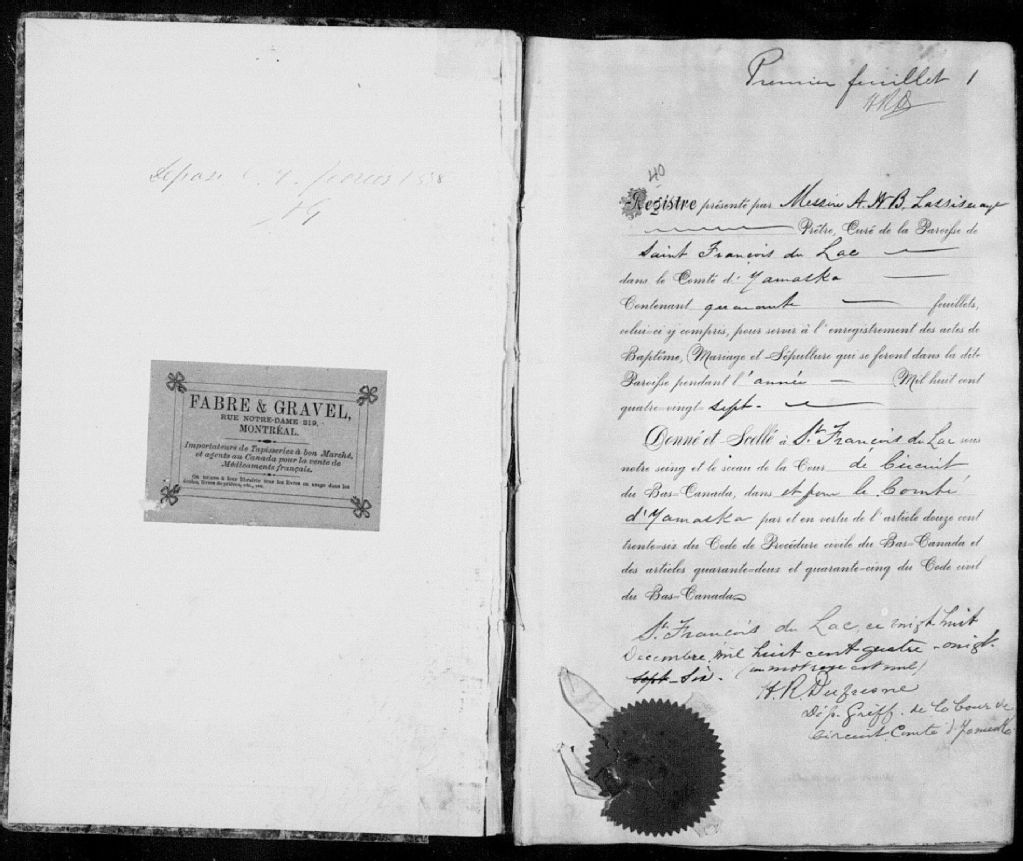 Déposé 7 février 188
AG
FABRE & GRAVEL,
RUE NOTRE-DAME 219,
MONTRÉAL.
Importateurs de Tapisseries à bon Marché,
et agents au Canada pour la vente de
Médicaments français.
On trouve à leur librairie tous les livres en usage dans les
écoles, livres de prières, etc., etc.
Premier feuillet 1
HRD
40
Registre présenté par Messire A. H. B. Lassiseraye
Prêtre, Curé de la Paroisse de
Saint François du Lac
dans le Comté d'Yamaska
Contenant quarante feuillets,
celui-ci y compris, pour servir à l'enregistrement des actes de
Baptême, Mariage et Sépulture qui se feront dans la dite
Paroisse pendant l'année Mil huit cent
quatre-vingt-sept.
Donné et Scellé à St. François du Lac sous
notre seing et le sceau de la Cour de Circuit
du Bas-Canada, dans et pour le Comté
d'Yamaska par et en vertu de l'article douze cent
trente-six du Code de Procédure civile du Bas-Canada et
des articles quarante-deux et quarante-cinq du Code civil
du Bas-Canada
St. François du Lac, ce vingt huit
Décembre, mil huit cent quatre-vingt-
sept-six. (un mot rayé est nul)
H. R. Dufresne
Dép. Greff. de la Cour de
Circuit, Comté d'Yamaska